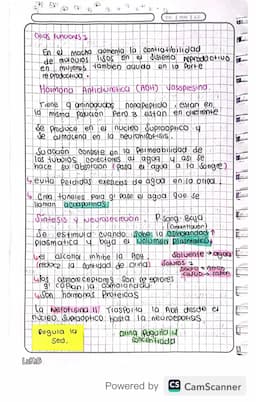 Otras funciones:
En el macho aumenta la contractibilidad
de músculos lisos en el sistema reproductivo
en mujeres también ayuda en la parte
reproductiva.
Hormona Antidiuretica (ADH) vasopresina.
Tiene 9 aminoacidos nonapeptido, estan en
la misma posición pero 3 estan en diferente
Se produce en el nucleo supraoptico y
se almacena en la neurohipofisis.
Su acción consiste en la Permeabilidad de
los tubulos colectores al agua y asi se
hace su absorción (pasa el agua a la sangre)
evita perdidas excesivas de agua en la orina.
Crea tuneles para q' pase el agua que se
llaman acuaporinas
Sintesis y Neurosecreción. P. sang. Baja
Se estimula cuando sube la osmolaridad ↑
plasmatica y baja el volumen plasmatico
el alcohol inhibe la ADH. Solvente → agua
(reduce la cantidad de orina) Solutos =
los osmoreceptores son receptores
q' captan la osmolaridad
son hormonas Proteicas
La Neurofisina II Transporta la ADH desde el
nucleo supraoptico hasta la neurohipofisis
Regula la
sed.
orina
concentrada
Powered by CS CamScanner